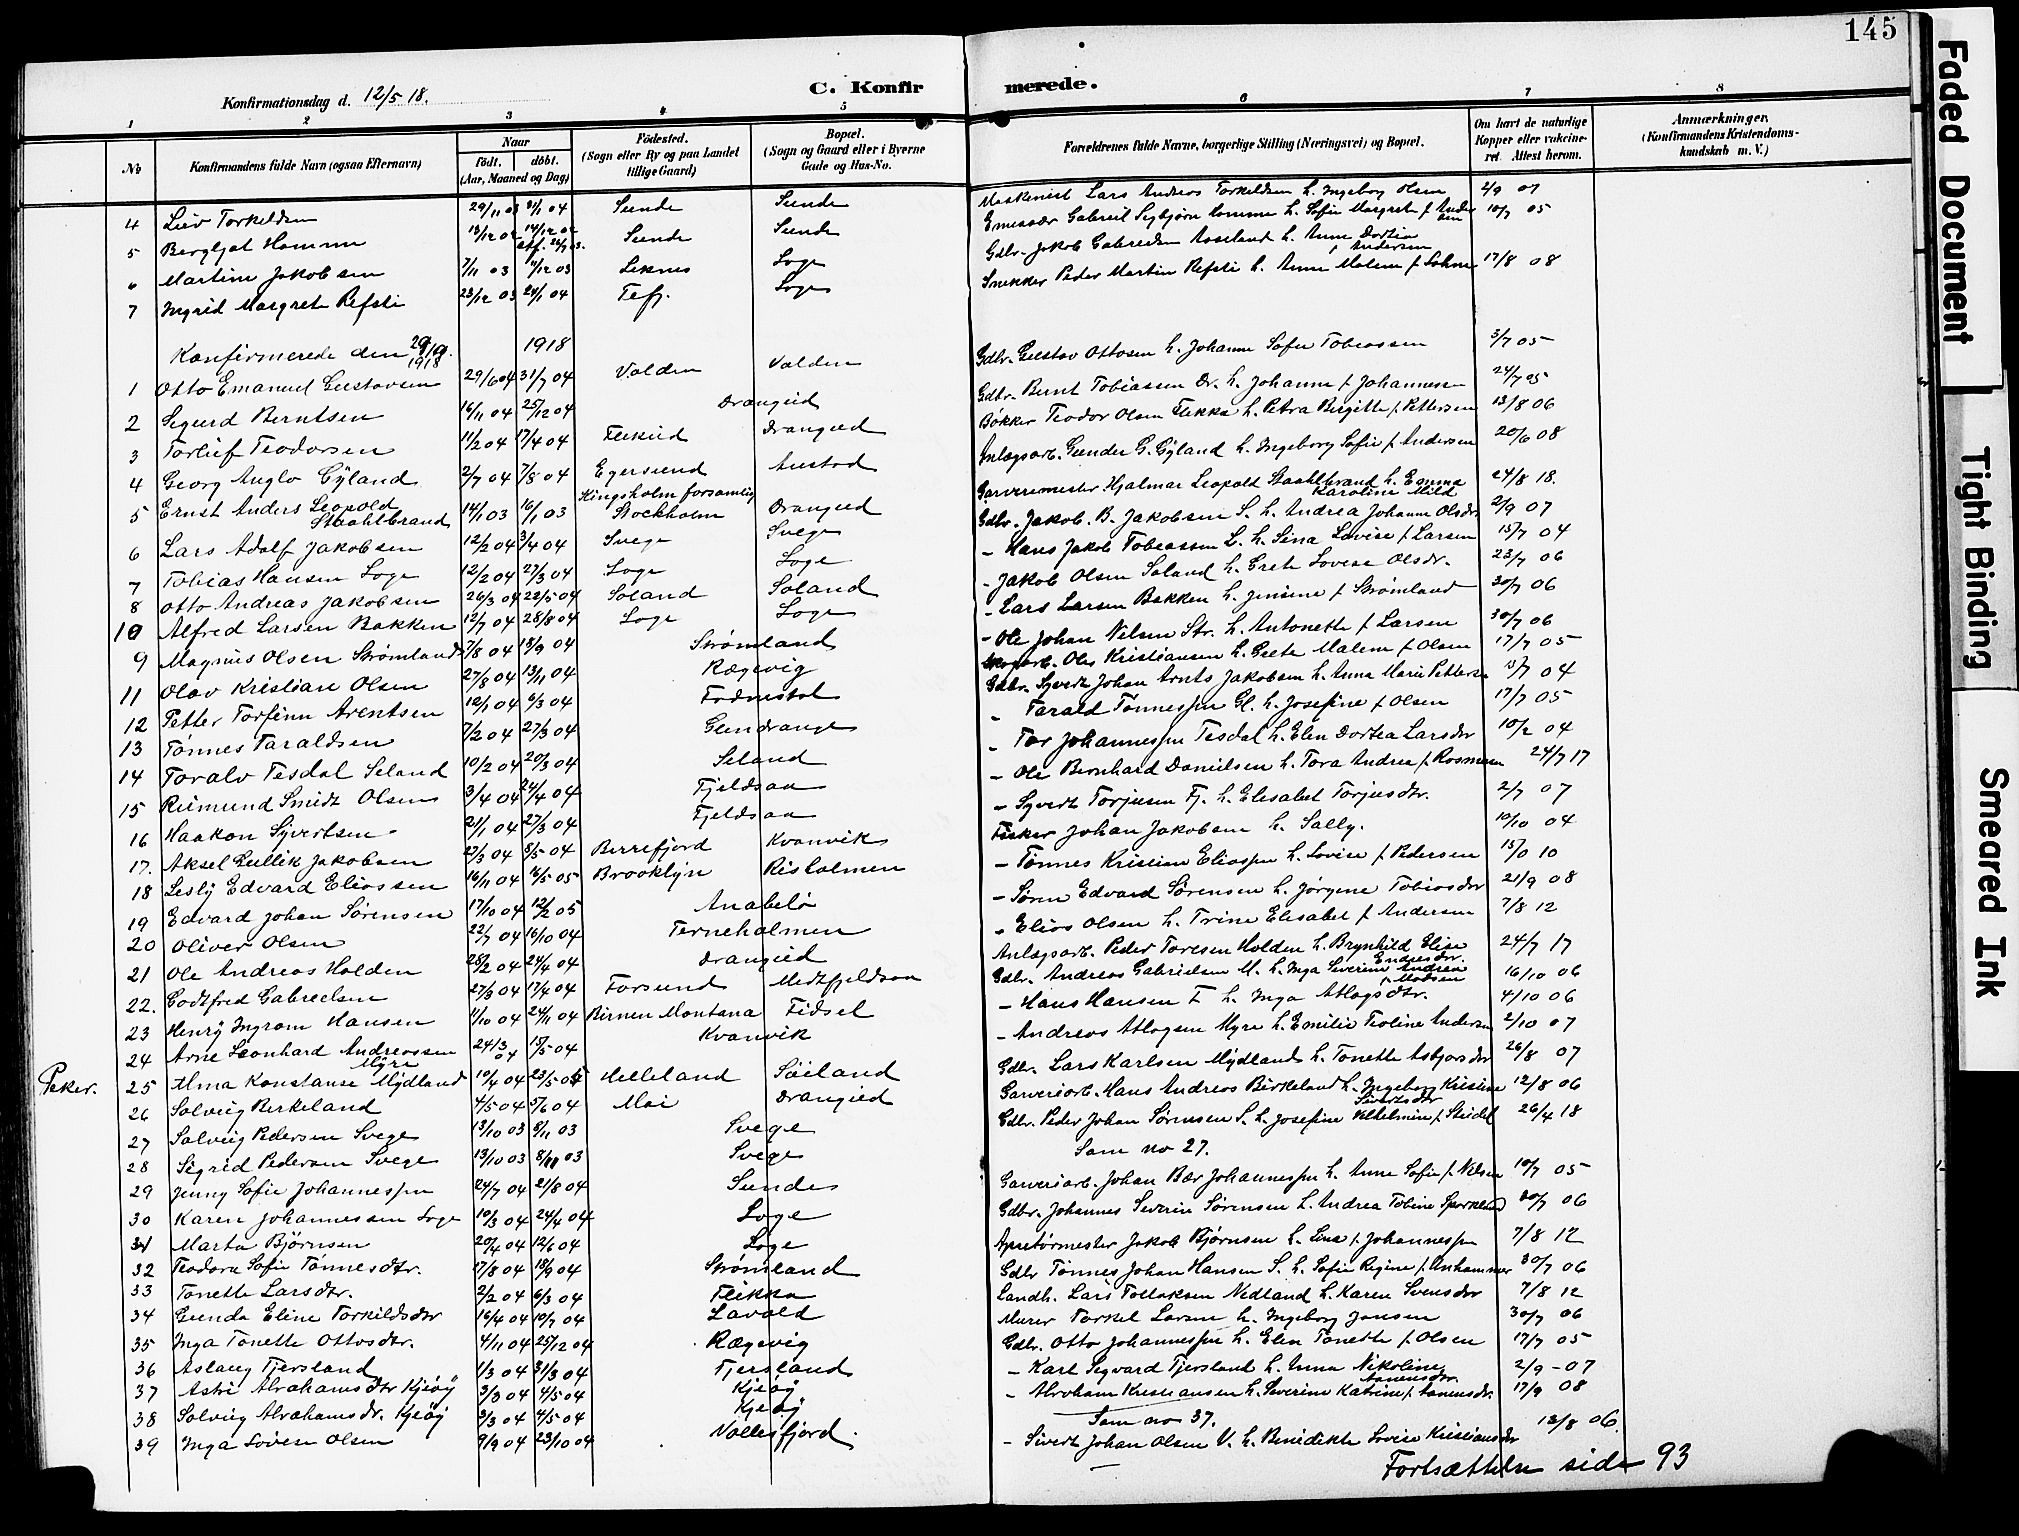 145
Konfirmationsdag d. 12/5 18.
C. Konfirmerede.
1 2 3 4 5 6 7 8
No
Konfirmandens fulde Navn (ogsaa Efternavn)
Naar
født. døbt.
(Aar, Maaned og Dag)
Fødested.
(Sogn eller By og paa Landet tillige Gaard)
Bopæl.
(Sogn og Gaard eller i Byerne Gade og Hus-No.
Forældrenes fulde Navne, borgerlige Stilling (Næringsvei) og Bopæl.
Om havt de naturlige Kopper eller vakcineret. Attest herom.
Anmærkninger.
(Konfirmandens Kristendomskundskab m. V.)
4 Liv Torkeldsen 29/11 03 31/1 04 Sunde Sunde Maskinist Lars Andreas Torkeldsen h. Ingeborg Olsen 2/9 07
5 Bergljot Homme Sunde Sunde Emissær Gabriel Sigbjørn Homme h. Sofie Margrete f. Andersen 10/7 05
6 Martine Jakobsen 7/11 03 Leknes Loge Gdbr. Jakob Gabrielsen Aaseland h. Anne Dortia Andersen
7 Ingrid Margrete Refsti 23/12 03 24/1 04 Loge Snekker Peder Martin Refsti h. Anne Malene f. 17/8 08
Konfirmerede den 29/9 1918 1918
1 Otto Emanuel Gustavsen 29/6 04 31/7 04 Valden Valden Gdbr. Gustav Ottosen h. Johanne Sofie Tobiassen 3/7 05
2 Sigurd Berntsen 16/11 04 25/12 04 Drangeid Gdbr. Bernt Tobiassen Dr. h. Johanne f. Johannessen 24/7 05
3 Torleif Teodorsen 11/2 04 17/4 04 Flikeid Drangeid Bøkker Teodor Olsen Flikka h. Petra Birgitte f. Pettersen 13/8 06
4 Georg Anglo Gÿland 2/7 04 7/8 04 Egersund Austad Anlægsarb. Gunder G. Gÿland h. Ingeborg Sofie f. Andersen 20/6 08
5 Ernst Anders Leopold Staahlbrand 14/1 03 16/1 03 Kingsholm forsamlig Stockholm Drangeid Garverimester Hjalmar Leopold Staahlbrand h. Emma Karoline Mild 24/8 18.
6 Lars Adolf Jakobsen 12/2 04 3/4 04 Svege Svege Gdbr. Jakob. B. Jakobsen S. h. Andrea Johanne Olsdr 2/9 07
7 Tobias Hansen Loge 12/2 04 27/3 04 Loge Loge - Hans Jakob Tobiassen L. h. Sina Lovise f. Larsen 15/7 04
8 Otto Andreas Jakobsen 26/3 04 22/5 04 Soland Soland - Jakob Olsen Soland h. Grete Lovise Olsdr. 23/7 06
10 Alfred Larsen Bakken 12/7 04 28/8 04 Loge Loge - Lars Larsen Bakken h. Jensine f. Strømland 30/7 06
9 Magnus Olsen Strømland 7/8 04 18/9 04 Strømland - Ole Johan Nilsen Str. h. Antonette f. Larsen 30/7 06
11 Olav Kristian Olsen 27/8 04 13/11 04 Rægevig Oles Kristiansen h. Grete Malene f. Olsen 17/7 05
12 Petter Torfinn Arentsen 12/1 04 6/3 04 Gdbr. Syvert Johan Arnts Jakobsen h. Anna Marie Pettersen 15/7 04
13 Tønnes Taraldsen 7/2 04 27/3 04 Gundrange - Tarald Tønnessen Gl. h. Josefine f. Olsen 17/7 05
14 Toralv Tesdal Seland 10/2 04 20/3 04 Seland - Tor Johannessen Tesdal h. Elen Dortea Larsdr 10/2 04
15 Reimund Smidt Olsen 3/4 04 24/4 04 Fjeldsaa - Ole Bernhard Danielsen h. Tora Andrea f. Rosmann 24/7 17
16 Haakon Syvertsen 21/1 04 27/3 04 Fjeldsaa - Syvert Torjusen Fj. h. Elisabet Torjusdtr. 2/7 07
17. Aksel Jakobsen 27/3 04 8/5 04 Berrefjord Kvanvik Fisker Johan Jakobsen h. Sally. 10/10 04
18 Lesly Edvard Eliassen 16/11 04 Brooklÿn Risholmen - Tønnes Kristian Eliassen h. Lovise f. Pedersen
19 Edvard Johan Sørensen 17/10 04 12/2 05 Anabelø - Søren Edvard Sørensen h. Jørgine Tobiasdtr 21/9 08
20 Oliver Olsen 22/7 04 16/10 04 Terneholmen - Elias Olsen h. Trine Elisabet f. Andersen 7/8 12
21 Ole Andreas Holden 28/2 04 24/4 04 Drangeid Anlægsarb. Peder Toresen Holden h. Brynhild Elise Endresdtr. 24/7 17
22. Godtfred Gabrielsen 27/3 04 17/4 04 Forsund Medtfjeldsaa Gdbr. Andreas Gabrielsen M. h. Inga Severine Andrea f. Madsen 16/10 06
23 Henry Ingram Hansen 11/10 04 24/11 04 Birnen Montana Fidsel - Hans Hansen F. h. Inga Atlagsdtr. 4/10 06
24 Arne Leonhard Andreassen Myre 24/3 04 15/5 04 Kvanvik - Andreas Atlagsen Myre h. Emilie Teoline Andersen 2/10 07
Piker. 25 Alma Konstanse Mÿdland 10/4 04 23/5 04 Helleland Søiland Gdbr. Lars Karlsen Mÿdland h. Tonette Asbjørsdtr 26/8 07
26 Solveig Birkeland 4/5 04 5/6 04 Moi Drangeid Garveriarb. Hans Andreas Birkeland h. Ingeborg Kristine Sivertsdtr 12/8 06
27 Solveig Pedersen Svege 13/10 03 8/11 03 Svege Gdbr. Peder Johan Sørensen S. h. Josefine Vilhelmine f. Steidel 26/4 18
28 Sigrid Pedersen Svege 13/10 03 8/11 03 Svege Som no 27.
29 Jenny Sofie Johannessen 24/7 04 21/8 04 Sunde Garveriarb. Johan Bær Johannessen h. Anne Sofie f. Nilsen 10/7 05
30 Karen Johannessen Loge 10/3 04 24/4 04 Loge Gdbr. Johannes Severin Sørensen h. Andrea Tobine Sparkland 30/7 06
31 Marta Bjørnsen 20/4 04 12/6 04 Loge Apretørmester Jakob Bjørnsen h. Lina f. Johannessen 7/8 12
32 Teodora Sofie Tønnesdtr. 17/8 04 18/9 04 Strømland Gdbr Tønnes Johan Hansen S. h. Sofie Regine f. Anhammer 30/7 06
33 Tonette Larsdtr. 2/2 04 6/3 04 Flikka Landh. Lars Tollaksen Nedland h. Karen Svensdtr 7/8 12
34 Gunda Eline Torkildsdtr 16/4 04 10/7 04 Lavold Murer Torkel Larsen h. Ingeborg Jansen 30/7 06
35 Inga Tonette Ottosdtr. 4/11 04 25/12 04 Rægevig Gdbr. Otto Johannessen h. Elen Tonette f. Olsen 17/7 05
36 Aslaug Tjersland 1/3 04 31/3 04 Tjersland - Karl Sigvard Tjersland h. Anna Nikoline Aanensdtr. 2/9 - 07
37 Astri Abrahamsdtr Kjeøÿ 3/3 04 4/5 04 Kjeøÿ - Abraham Kristiansen h. Severine Katrine f. Aanensdr. 17/9 08
38 Solveig Abrahamsdr. Kjeøÿ 3/3 04 4/5 04 Kjeøÿ Som no 37.
39 Inga Lovise Olsen 9/9 04 23/10 04 Vollesfjord. - Sivert Johan Olsen V. h. Benedikte Lovise Kristiansdtr 13/8 06.
Fortsættelse side 93
Faded Document
Tight Binding
Smeared Ink